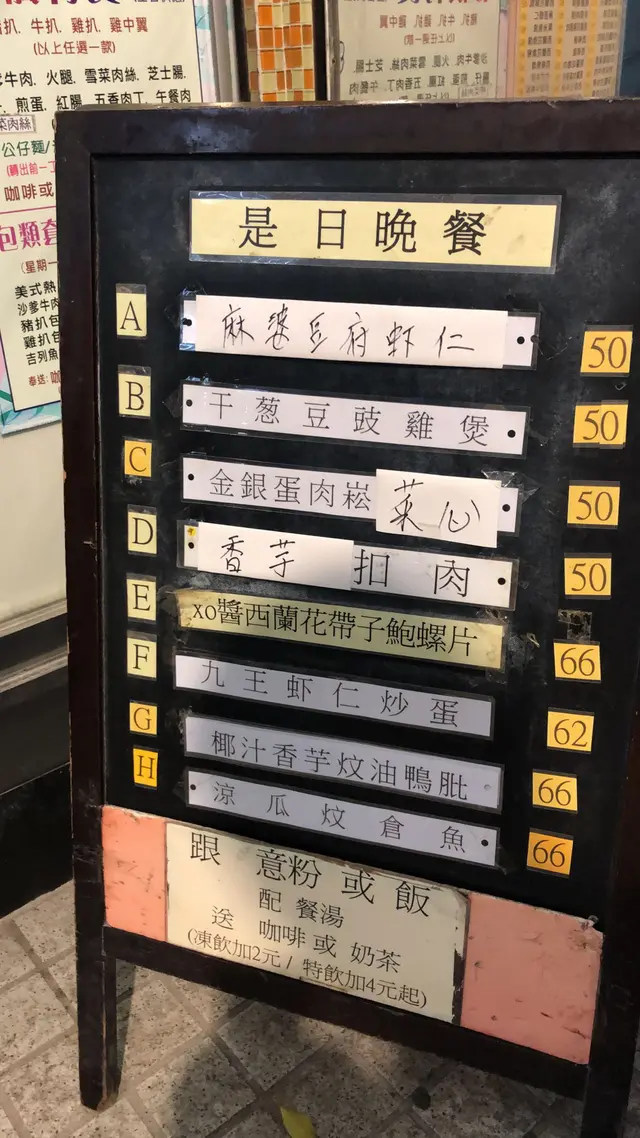 扒. 牛扒. 雞扒. 雞中翼
(以上任選一款)
牛肉. 火腿. 雪菜肉絲. 芝士腸.
煎蛋. 紅腸. 五香肉丁. 午餐肉
菜肉絲
公仔麵/
咖啡或
包類套
(星期一
美式熱
沙爹牛肉
豬扒包
雞扒包
吉列魚
奉送:咖
扒. 牛扒. 雞扒. 雞中翼
(以上任選一款)
是日晚餐
A 麻婆豆府虾仁 50
B 干葱豆豉雞煲 50
C 金銀蛋肉崧菜心 50
D 香芋扣肉 50
E xo醬西蘭花帶子鮑螺片 66
F 九王虾仁炒蛋 62
G 椰汁香芋炆油鴨肶 66
H 涼瓜炆倉魚 66
跟意粉或飯
配餐湯
送 咖啡或奶茶
(凍飲加2元 / 特飲加4元起)